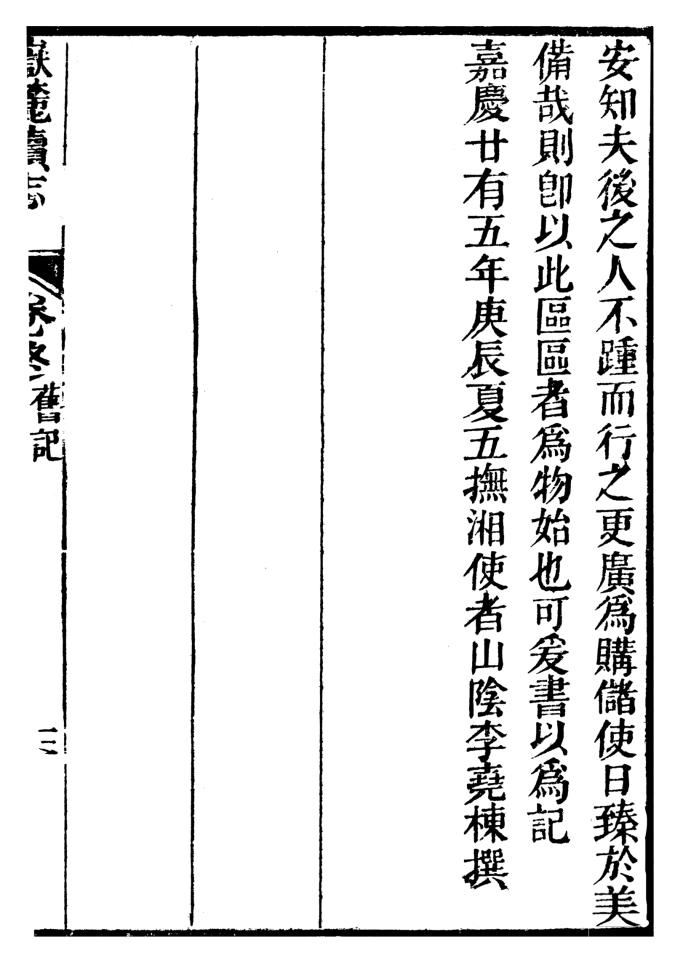 安知夫後之人不踵而行之更廣爲購儲使日臻於美
備哉則卽以此區區者爲物始也可爰書以爲記
嘉慶廿有五年庚辰夏五撫湘使者山陰李堯棟撰
嶽麓續志
卷終
舊記